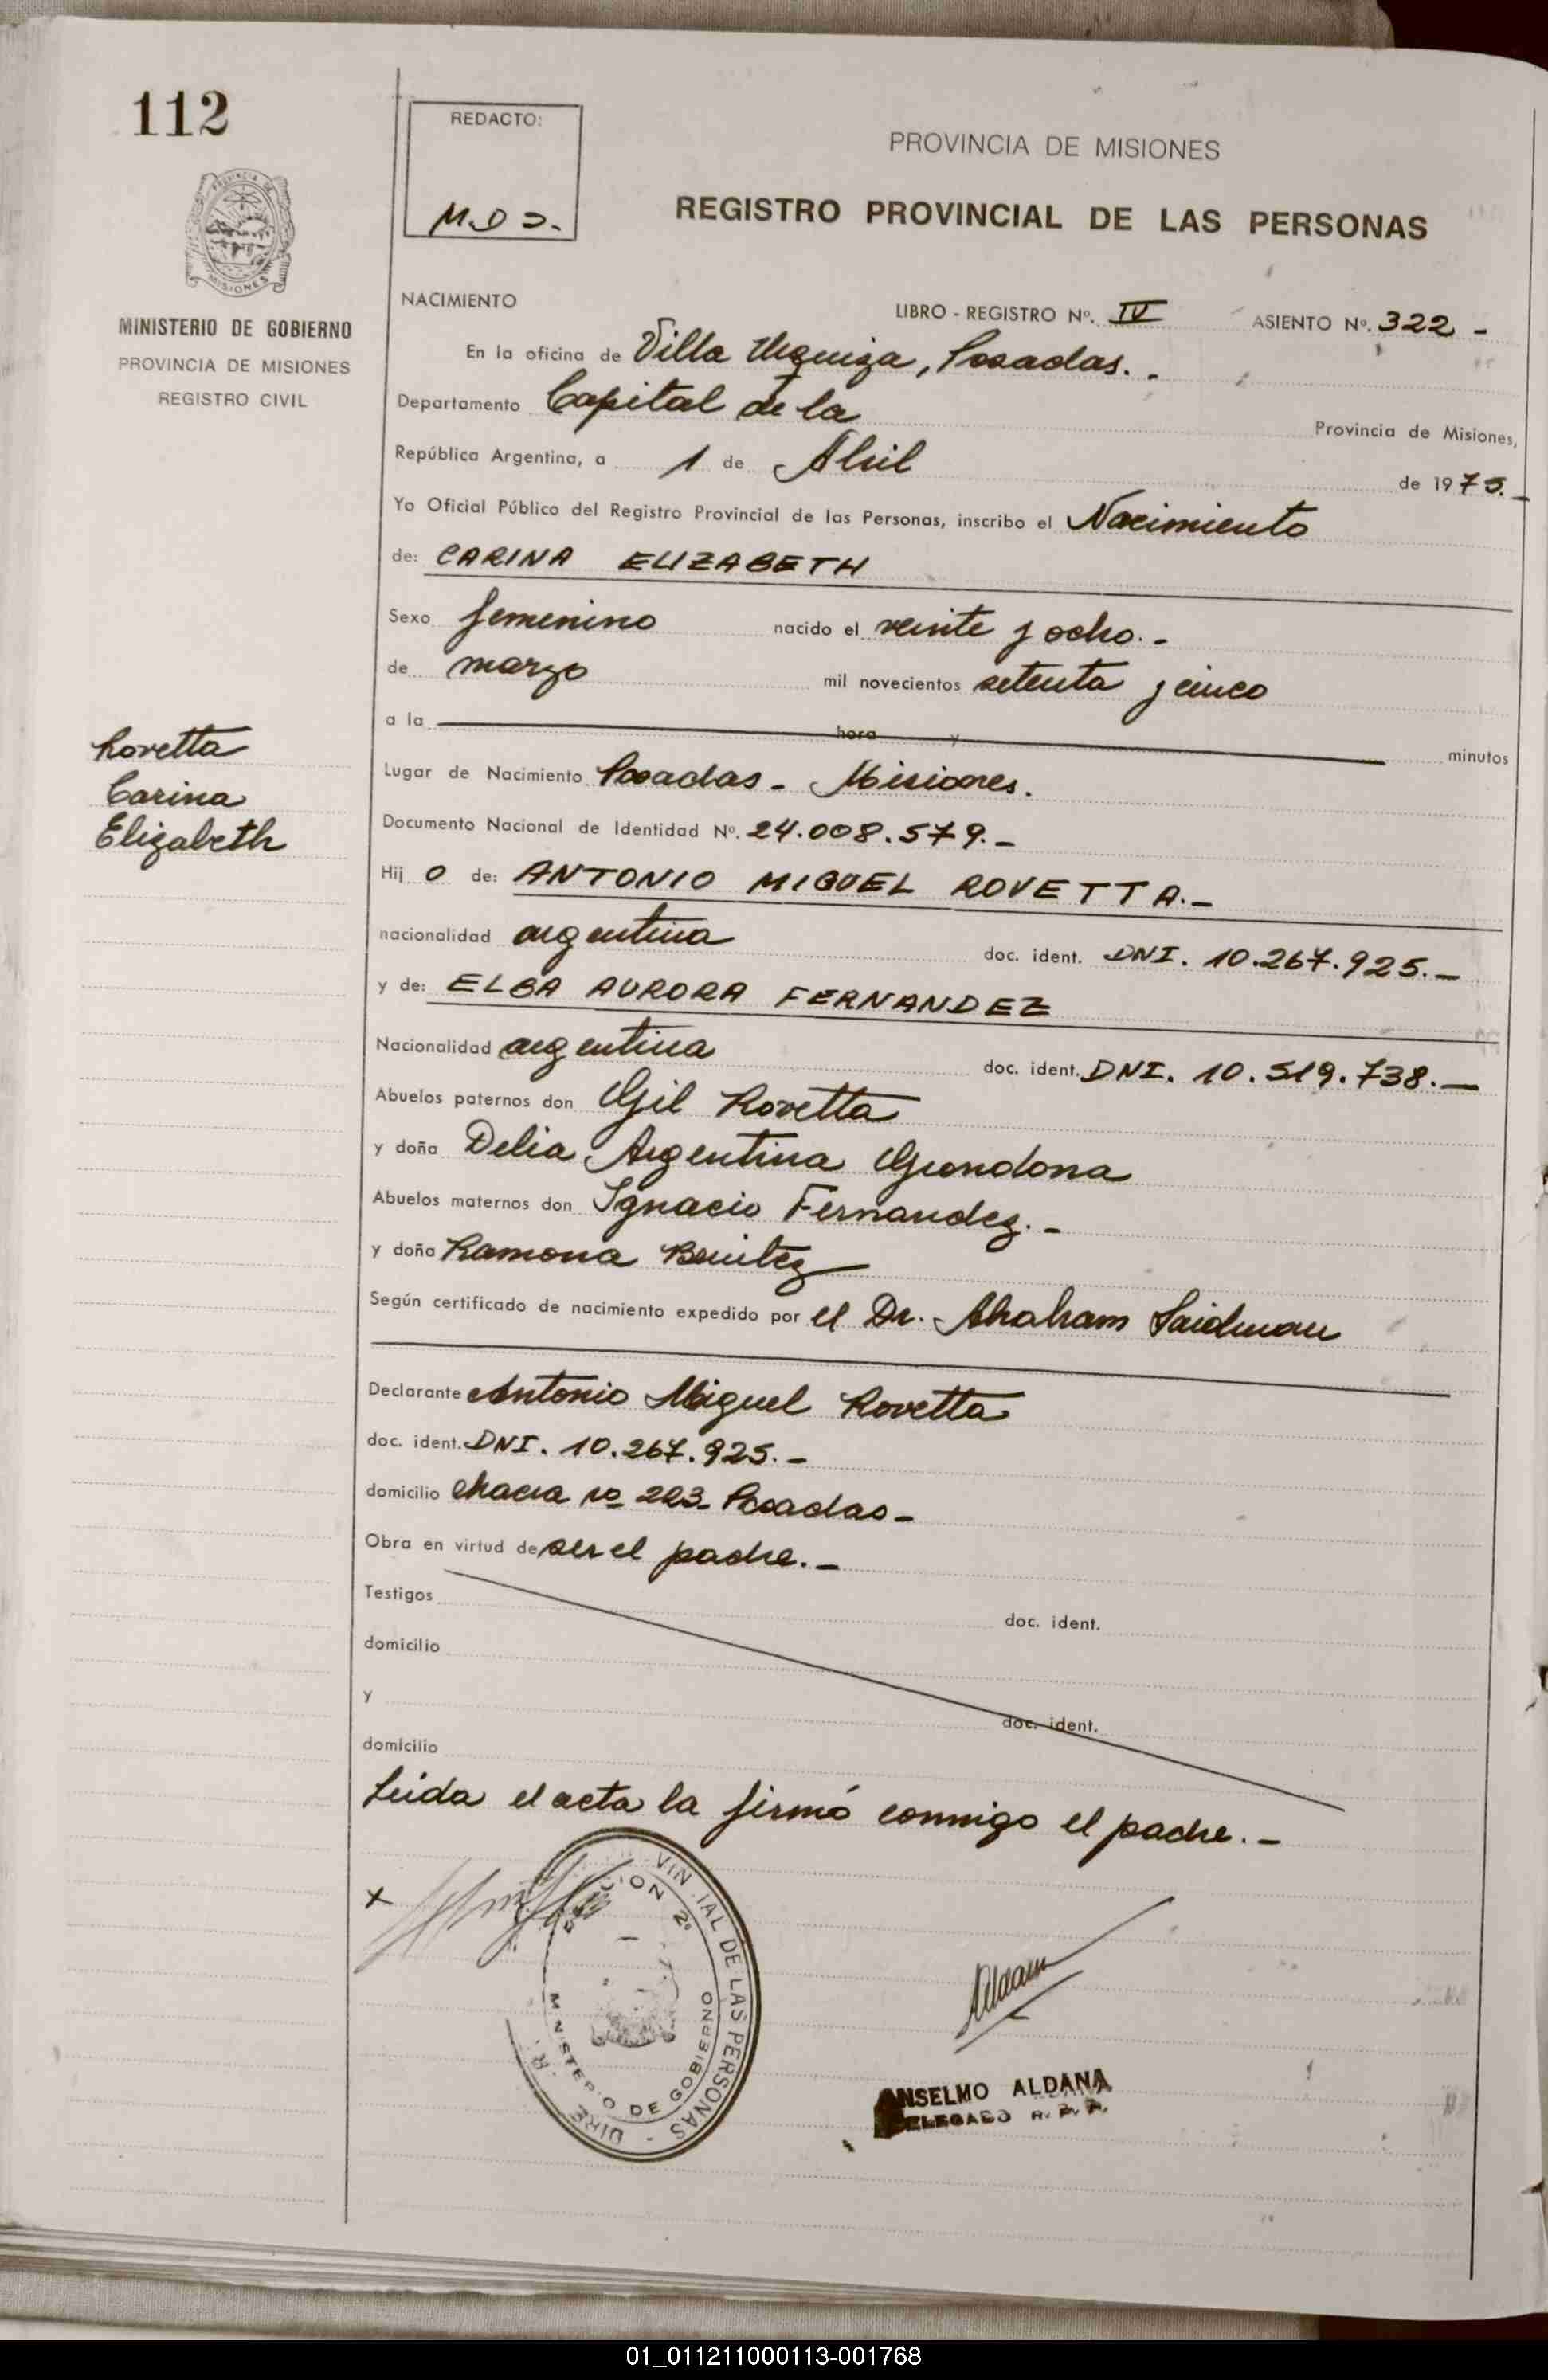 112
REDACTO:
M.D J.
PROVINCIA DE MISIONES
REGISTRO PROVINCIAL DE LAS PERSONAS
PROVINCIA DE
MISIONES
MINISTERIO DE GOBIERNO
PROVINCIA DE MISIONES
REGISTRO CIVIL
NACIMIENTO LIBRO - REGISTRO Nº. IV ASIENTO Nº. 322 -
En la oficina de Villa Urquiza, Posadas. -
Departamento Capital de la Provincia de Misiones,
República Argentina, a 1 de Abril de 1975.-
Yo Oficial Público del Registro Provincial de las Personas, inscribo el Nacimiento
de: CARINA ELIZABETH
Sexo femenino nacido el veinte y ocho.-
de marzo mil novecientos setenta y cinco
a la hora y minutos
Rovetta
Carina
Elizabeth
Lugar de Nacimiento Posadas - Misiones.
Documento Nacional de Identidad Nº. 24.008.579.-
Hij o de: ANTONIO MIGUEL ROVETTA.-
nacionalidad argentina doc. ident. DNI. 10.267.925.-
y de: ELBA AURORA FERNANDEZ
Nacionalidad argentina doc. ident. DNI. 10.519.738.-
Abuelos paternos don Gil Rovetta
y doña Delia Argentina Grondona
Abuelos maternos don Ignacio Fernandez.-
y doña Ramona Benitez
Según certificado de nacimiento expedido por el Dr. Abraham Saidman
Declarante Antonio Miguel Rovetta
doc. ident. DNI. 10.267.925.-
domicilio chacra nº 223- Posadas-
Obra en virtud de ser el padre.-
Testigos doc. ident.
domicilio
y doc. ident.
domicilio
Leida el acta la firmó conmigo el padre.-
x
VIN IAL DE LAS PERSONAS - DIRE
CION 2º
MINISTERIO DE GOBIERNO
Aldana
ANSELMO ALDANA
DELEGADO R. P. P.
01_011211000113-001768